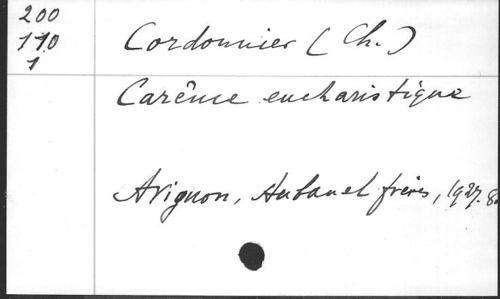 200
110
1
Cordonnier (Ch.)
Carême eucharistique
Avignon, Aubanel frères, 1927. 8o